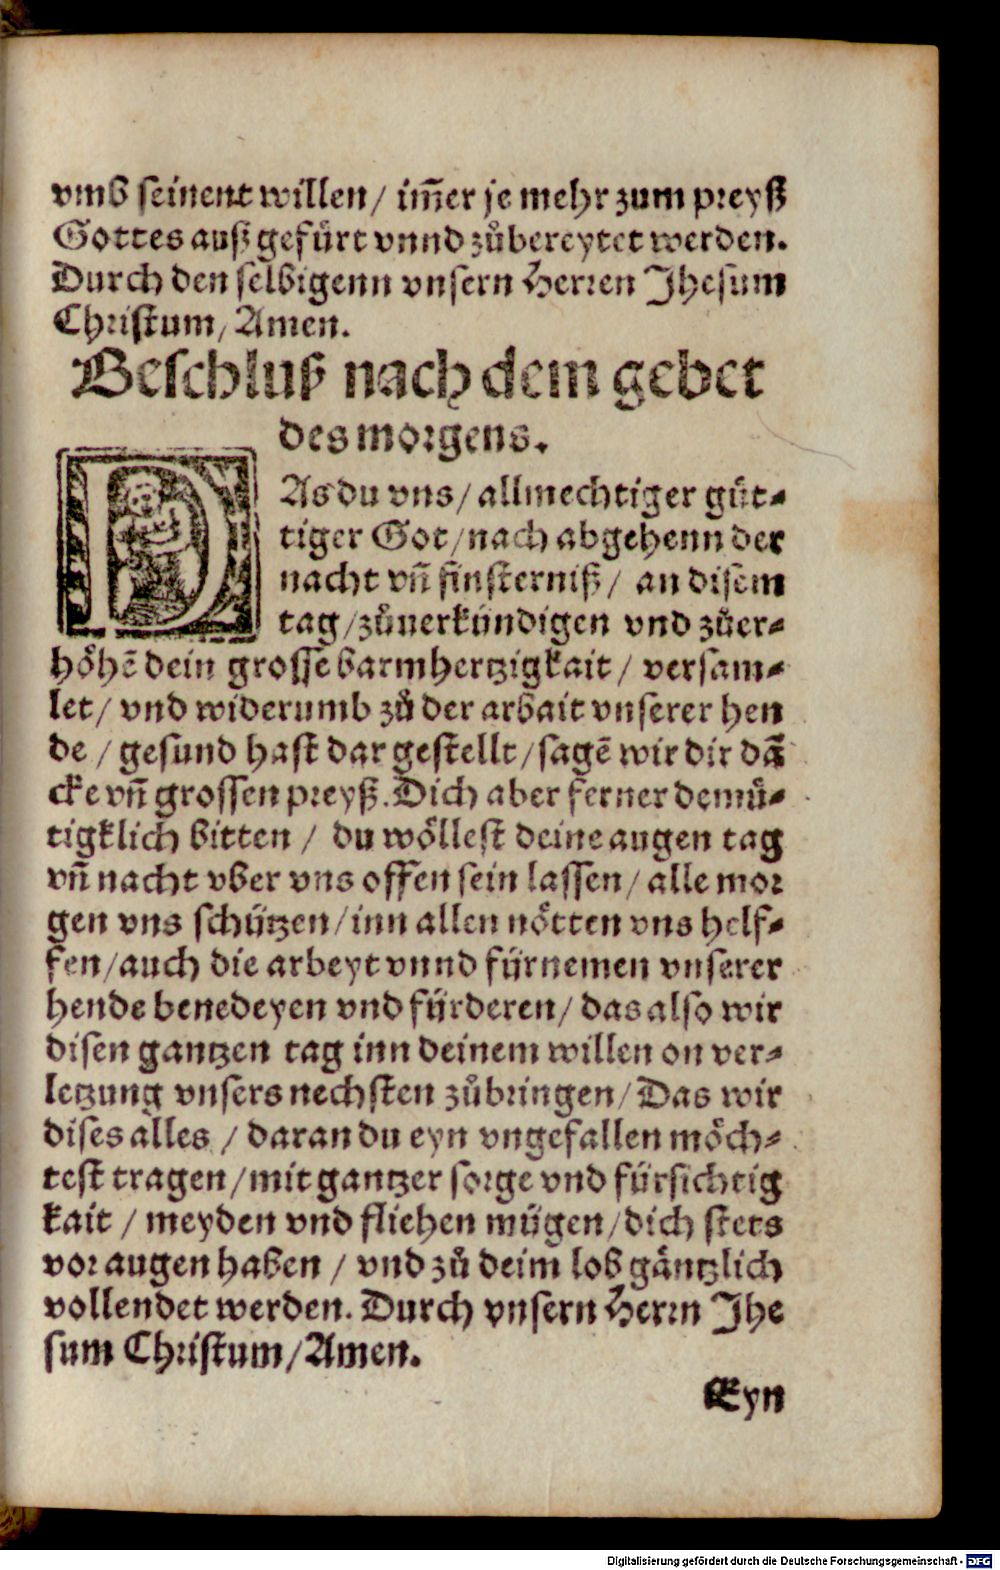 vmb seinent willen/ im̃er je mehr zum preyß
Gottes auß gefürt vnnd zůbereytet werden.
Durch den selbigenn vnsern Herren Jhesum
Christum/ Amen.
Beschluß nach dem gebet
des morgens.
DAs du vns/ allmechtiger güt-
tiger Got/ nach abgehenn der
nacht vñ finsterniß/ an disem
tag/ zůuerkündigen vnd zůer-
höhẽ dein grosse barmhertzigkait/ versam-
let/ vnd widerumb zů der arbait vnserer hen
de/ gesund hast dar gestellt/ sagẽ wir dir dã
cke vñ grossen preyß. Dich aber ferner demü-
tigklich bitten/ du wöllest deine augen tag
vñ nacht vber vns offen sein lassen/ alle mor
gen vns schützen/ inn allen nötten vns helf-
fen/ auch die arbeyt vnnd fürnemen vnserer
hende benedeyen vnd fürderen/ das also wir
disen gantzen tag inn deinem willen on ver-
letzung vnsers nechsten zůbringen/ Das wir
dises alles/ daran du eyn vngefallen möch-
test tragen/ mit gantzer sorge vnd fürsichtig
kait/ meyden vnd fliehen mügen/ dich stets
vor augen haben/ vnd zů deim lob gäntzlich
vollendet werden. Durch vnsern Herrn Jhe
sum Christum/ Amen.
Eyn
Digitalisierung gefördert durch die Deutsche Forschungsgemeinschaft - DFG